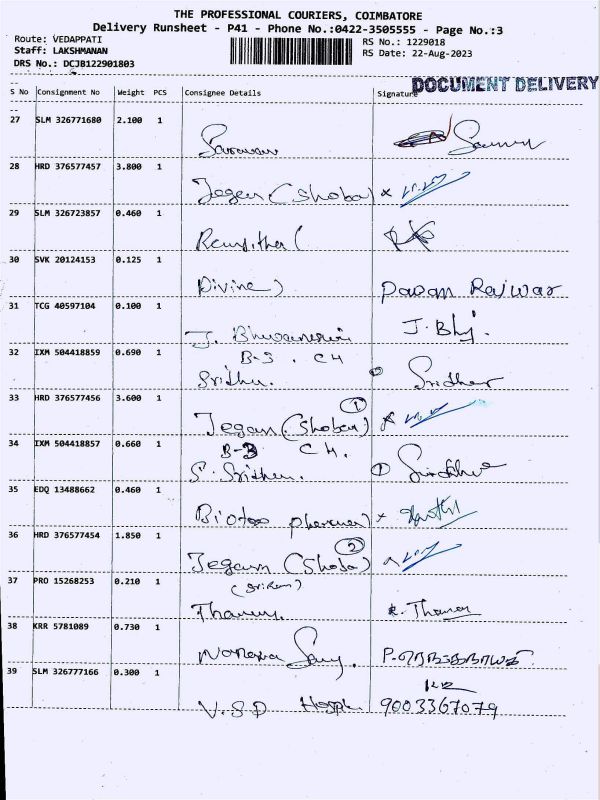 THE PROFESSIONAL COURIERS, COIMBATORE
Delivery Runsheet - P41 - Phone No.:0422-3505555 - Page No.:3
Route: VEDAPPATI
RS No.: 1229018
Staff: LAKSHMANAN
RS Date: 22-Aug-2023
DRS No.: DCJB122901803
DOCUMENT DELIVERY
S No Consignment No Weight PCS Consignee Details Signature
27 SLM 326771680 2.100 1
Saravanan
28 HRD 376577457 3.800 1
Jegan (Shoba) x
29 SLM 326723857 0.460 1
30 SVK 20124153 0.125 1
Divine) Pavan Rajwar
31 TCG 40597104 0.100 1
J. J. Bhj.
32 IXM 504418859 0.690 1
B-3. C4
Sridhar
33 HRD 376577456 3.600 1
1
Jegan (Shoba) x
34 IXM 504418857 0.660 1
B-3 C4.
S. 1
35 EDQ 13488662 0.460 1
x
36 HRD 376577454 1.850 1
2
Jegan (Shoba)
37 PRO 15268253 0.210 1
38 KRR 5781089 0.730 1
39 SLM 326777166 0.300 1
V.S.D 9003367079